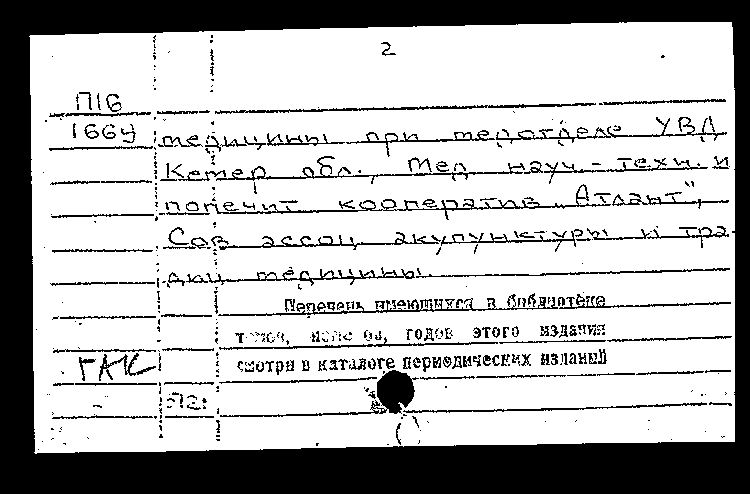 2
П16
1664
медицины при медотделе УВД
Кемер обл., Мед науч.-техн. и
попечит кооператив „Атлант",
Сов ассоц акупунктуры и тра-
диц медицины.
Перечень имеющихся в библиотеке
томов, годов этого издания
смотри в каталоге периодических изданий
ГАК